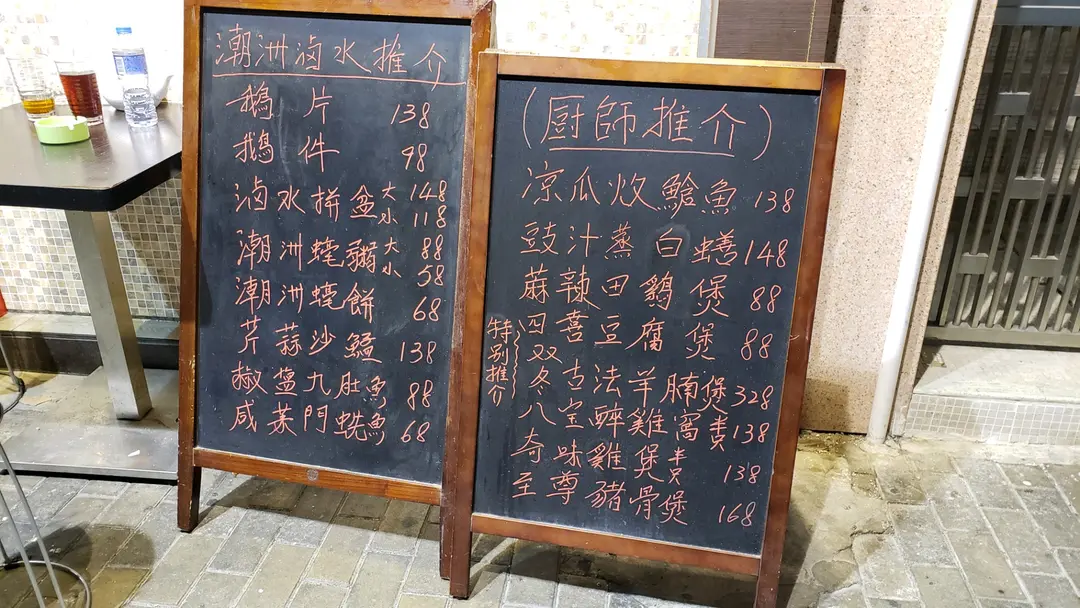 潮洲滷水推介
鵝片 138
鵝件 98
滷水拼盆 大 148
小 118
潮洲蠔粥 大 88
小 58
潮洲蠔餅 68
芹蒜沙鯭 138
椒盐九肚魚 88
咸菜門鱿魚 68
(厨師推介)
凉瓜炆鯰魚 138
豉汁蒸白鱔 148
麻辣田鷄煲 88
四喜豆腐煲 88
特别推介
双冬古法羊腩煲 328
八宝醉雞窩 138
奇味雞煲 138
至尊豬骨煲 168